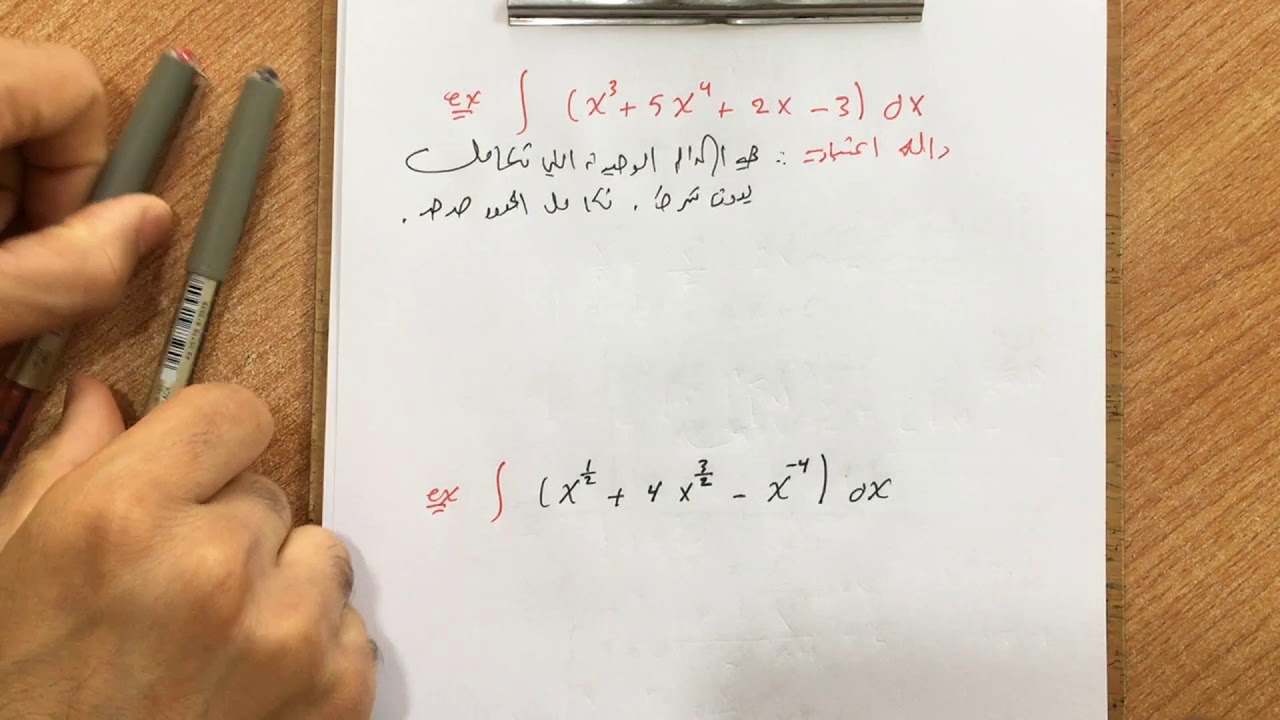 ex ∫ (x³ + 5x⁴ + 2x − 3) dx
دالة اعتيادية : هي الدالة الوحيدة اللي تكامل
بدون شرط . نكامل الحدود حد حد .
ex ∫ (x^{1/2} + 4x^{3/2} − x^{-4}) dx